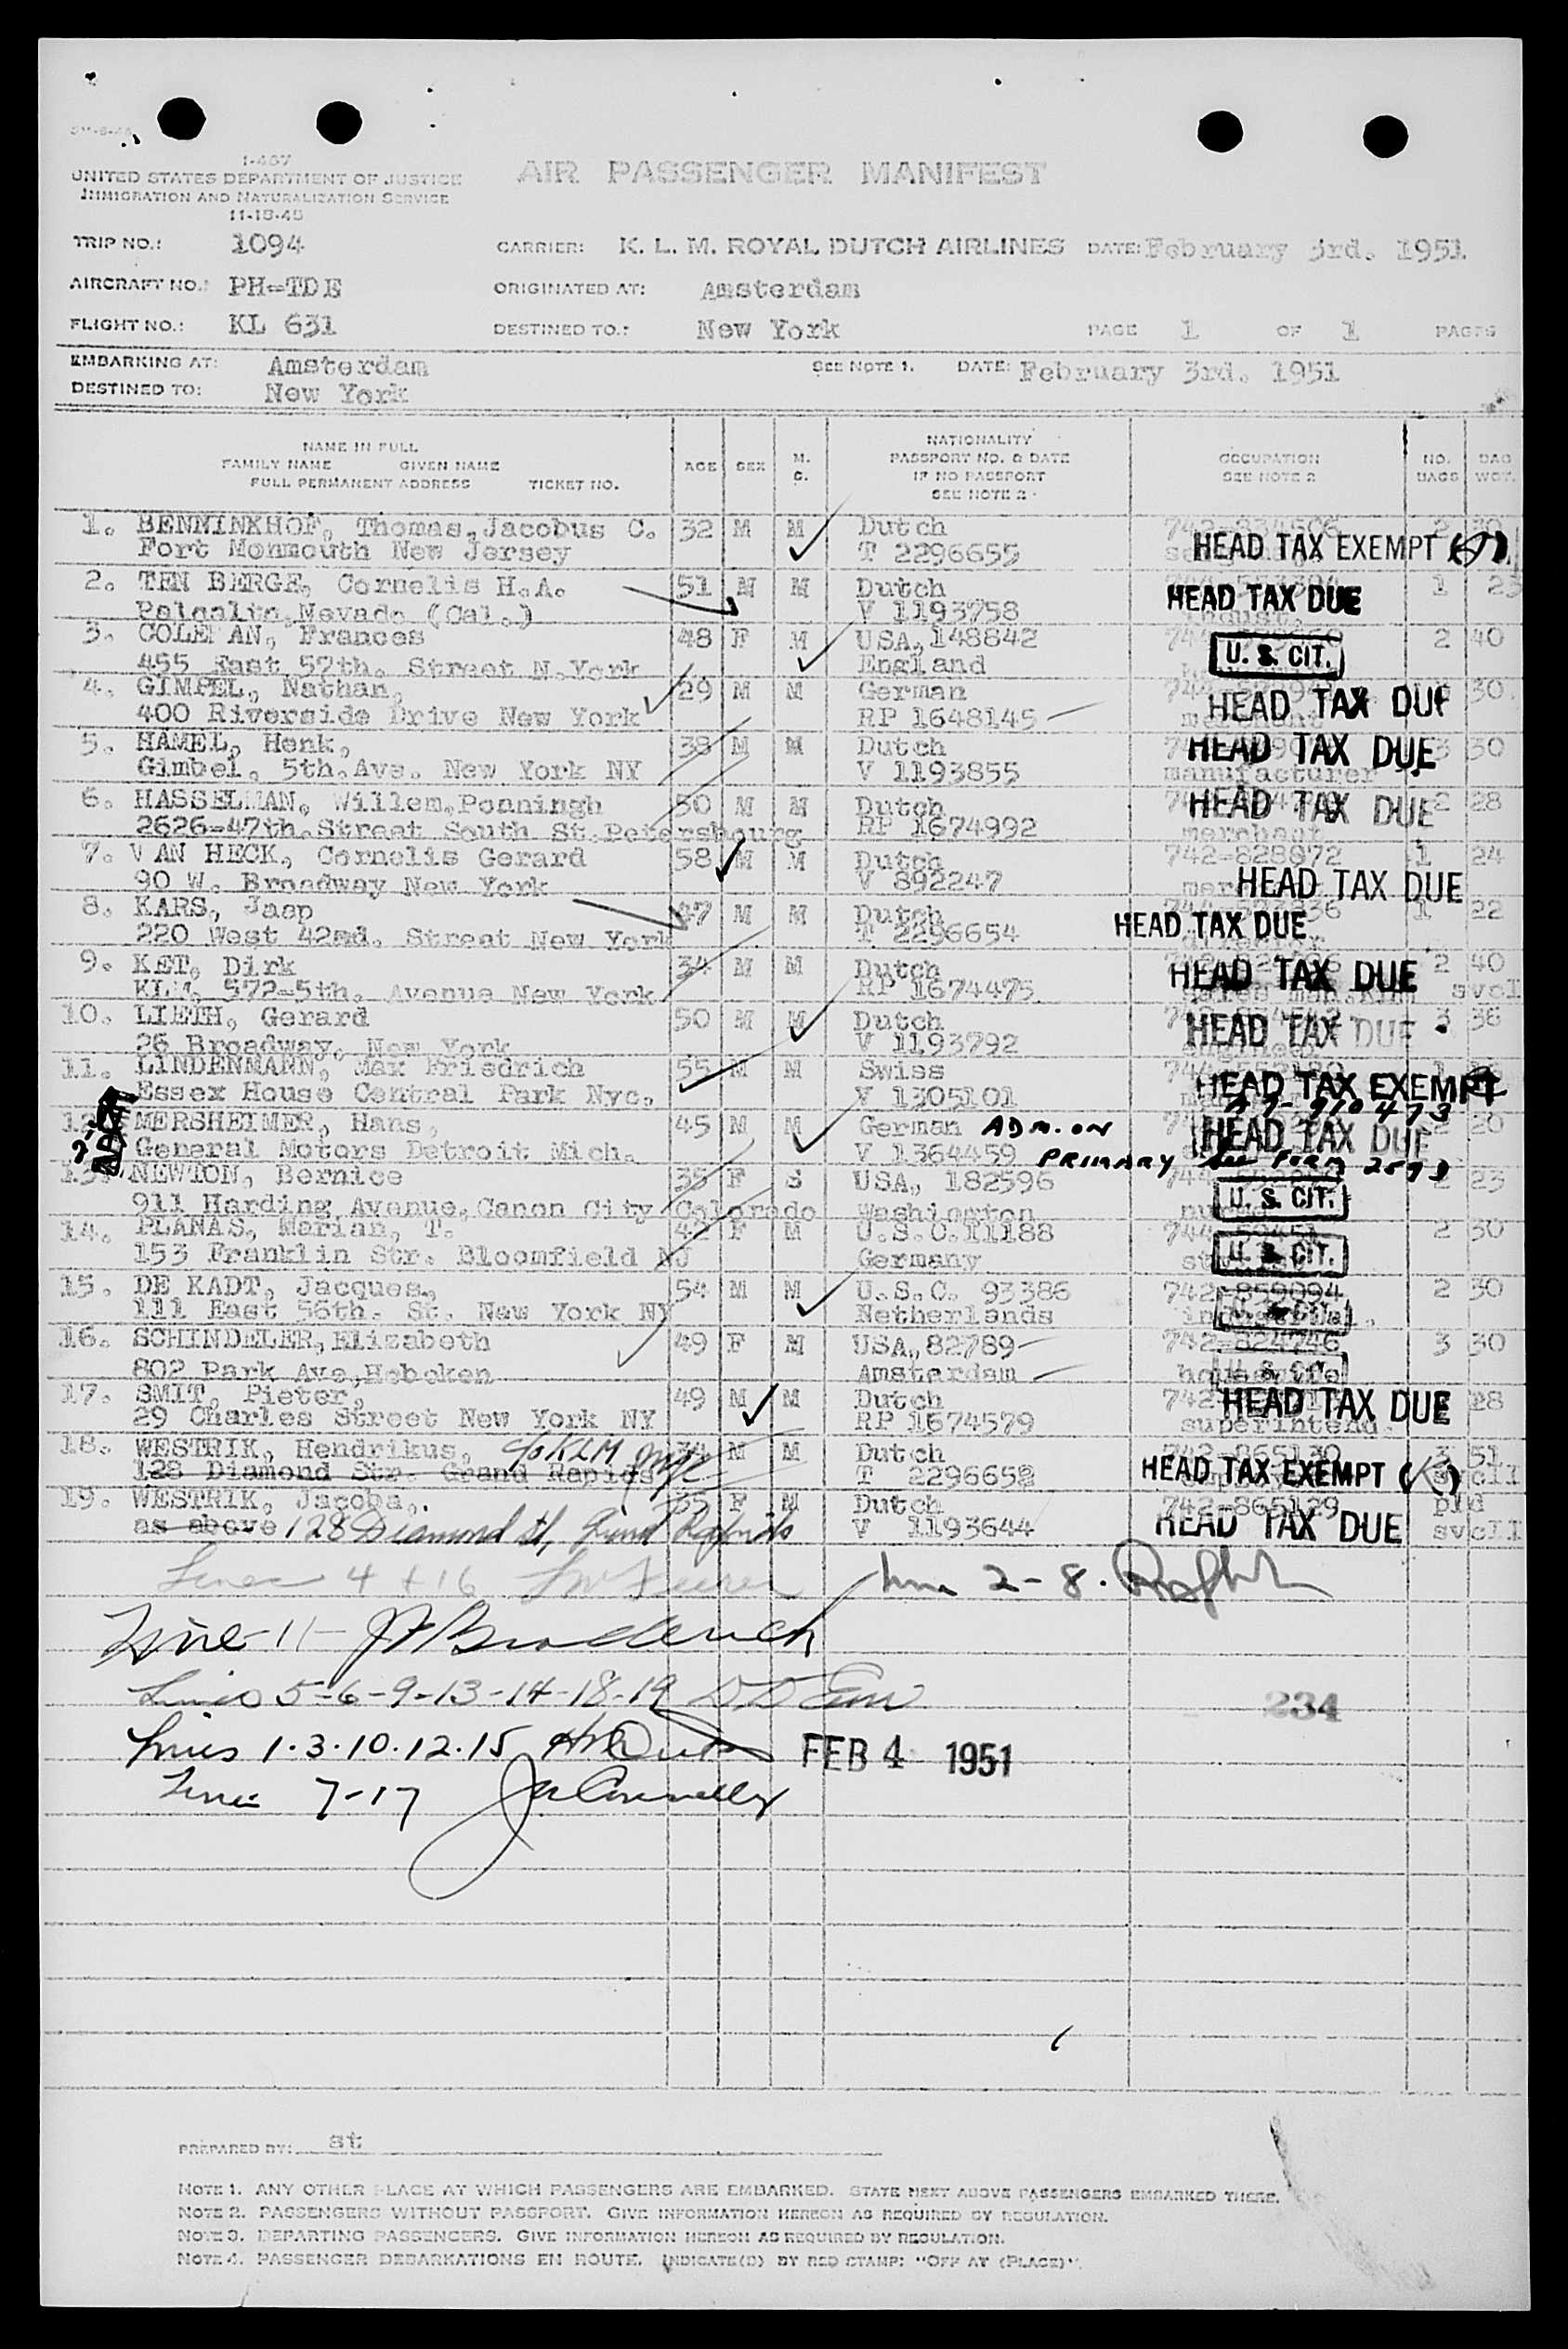 I-467
UNITED STATES DEPARTMENT OF JUSTICE
IMMIGRATION AND NATURALIZATION SERVICE
11-15-45
AIR PASSENGER MANIFEST
TRIP NO.: 1094 CARRIER: K. L. M. ROYAL DUTCH AIRLINES DATE: February 3rd. 1951
AIRCRAFT NO.: PH-TDE ORIGINATED AT: Amsterdam
FLIGHT NO.: KL 631 DESTINED TO.: New York PAGE 1 OF 1 PAGES
EMBARKING AT: Amsterdam SEE NOTE 1. DATE: February 3rd. 1951
DESTINED TO: New York
NAME IN FULL
FAMILY NAME GIVEN NAME
FULL PERMANENT ADDRESS TICKET NO.
AGE SEX M. S.
NATIONALITY
PASSPORT NO. & DATE
IF NO PASSPORT
SEE NOTE 2
OCCUPATION
SEE NOTE 2
NO. BAGS BAG WGT.
1. BENNINKHOF, Thomas,Jacobus C. 32 M M Dutch 742-834506 2 30
Fort Monmouth New Jersey T 2296655 HEAD TAX EXEMPT
2. TEN BERGE, Cornelis H.A. 51 M M Dutch 1 23
Paloalto,Nevado (Cal.) V 1193758 HEAD TAX DUE
3. COLEMAN, Frances 48 F M USA,148842 2 40
455 East 57th. Street N.York England U. S. CIT.
4. GIMPEL, Nathan, 29 M M German 30.
400 Riverside Drive New York RP 1648145 merchant HEAD TAX DUE
5. HAMEL, Henk, 38 M M Dutch 3 30
Gimbel, 5th.Ave. New York NY V 1193855 manufacturer HEAD TAX DUE
6. HASSELMAN, Willem,Ponningh 50 M M Dutch 2 28
2626-47th.Street South St.Petersbourg RP 1674992 merchant HEAD TAX DUE
7. VAN HECK, Cornelis Gerard 58 M M Dutch 742-828072 1 24
90 W. Broadway New York V 892247 HEAD TAX DUE
8. KARS, Jaap 47 M M Dutch 1 22
220 West 42nd. Street New York T 2296654 director HEAD TAX DUE
9. KET, Dirk 34 M M Dutch 2 40
KLM, 572-5th. Avenue New York RP 1674475 HEAD TAX DUE svcl
10. LIETH, Gerard 50 M M Dutch 3 36
26 Broadway, New York V 1193792 engineer HEAD TAX DUE
11. LINDENMANN, Max Friedrich 55 M M Swiss 1
Essex House Central Park Nyc. V 1305101 HEAD TAX EXEMPT
12. MERSHEIMER, Hans, 45 M M German ADM. ON A7-910473 2 20
General Motors Detroit Mich. V 1364459 PRIMARY See FORM HEAD TAX DUE
13. NEWTON, Bernice 35 F S USA, 182596 2 23
911 Harding Avenue,Canon City Colorado Washington U. S. CIT.
14. PLANAS, Marian, T. 42 F M U.S.C.11188 2 30
153 Franklin Str. Bloomfield NJ Germany U. S. CIT.
15. DE KADT, Jacques, 54 M M U.S.C. 93386 742-859094 2 30
111 East 56th. St. New York NY Netherlands U. S. CIT.
16. SCHINDELER,Elizabeth 49 F M USA,82789 742-824746 3 30
802 Park Ave,Hoboken Amsterdam housewife U. S. CIT.
17. SMIT, Pieter, 49 M M Dutch 28
29 Charles Street New York NY RP 1674579 superintend. HEAD TAX DUE
18. WESTRIK, Hendrikus, c/o KLM nyc 34 M M Dutch 742-865130 3 51
128 Diamond Str. Grand Rapids T 2296652 HEAD TAX EXEMPT svcll
19. WESTRIK, Jacoba, 35 F M Dutch 742-865129 pld
as above 128 Diamond St, Grand Rapids V 1193644 HEAD TAX DUE svcll
Lines 4 + 16
Line 2-8.
Line-11- J F Broderick
Lines 5-6-9-13-14-18-19
234
Lines 1.3.10.12.15 FEB 4 1951
Lines 7-17 J Connelly
PREPARED BY: st
NOTE 1. ANY OTHER PLACE AT WHICH PASSENGERS ARE EMBARKED. STATE NEXT ABOVE PASSENGERS EMBARKED THERE.
NOTE 2. PASSENGERS WITHOUT PASSPORT. GIVE INFORMATION HEREON AS REQUIRED BY REGULATION.
NOTE 3. DEPARTING PASSENGERS. GIVE INFORMATION HEREON AS REQUIRED BY REGULATION.
NOTE 4. PASSENGER DEBARKATIONS EN ROUTE. INDICATE(D) BY RED STAMP: "OFF AT (PLACE)".